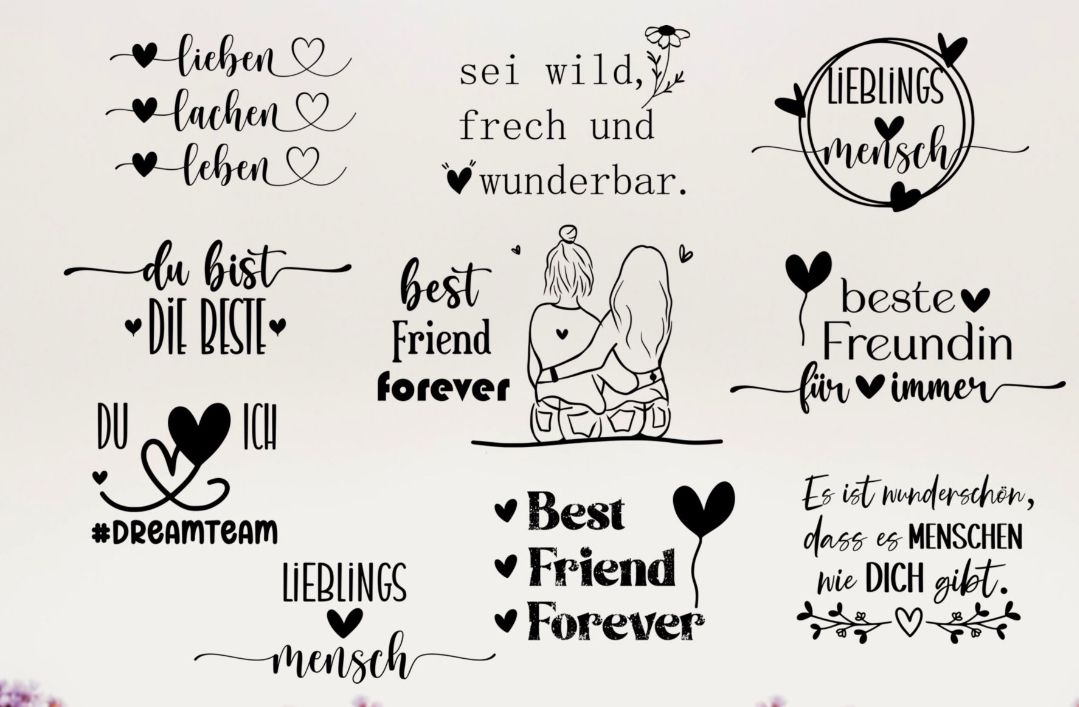 lieben
lachen
leben
sei wild,
frech und
wunderbar.
LiEBLiNGS
mensch
du bist
DiE BESTE
best
Friend
forever
beste
Freundin
für immer
DU ICH
#DREAMTEAM
LiEBLiNGS
mensch
Best
Friend
Forever
Es ist wunderschön,
dass es MENSCHEN
wie DICH gibt.